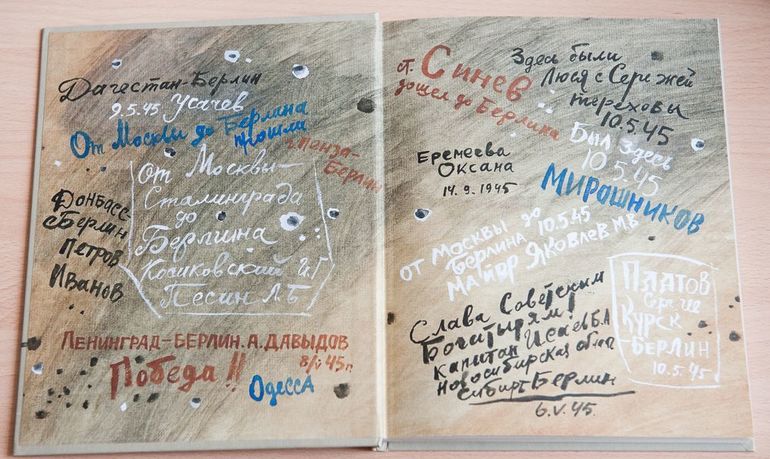 Дагестан-Берлин
9.5.45 Усачев
От Москвы до Берлина
прошли
г. Пенза-
Берлин
От Москвы-
Сталинграда
до
Берлина
Косиковский И.Г
Песин Л.Б
Донбасс-
Берлин
Петров
Иванов
Ленинград-Берлин. А. Давыдов
8/V 45г.
Победа!!
Одесса
ст. Синев
дошел до Берлина
Здесь были
Люся с Сережей
Тереховы
10.5.45
Был здесь
10.5.45
Мирошников
Еремеева
Оксана
14.9.1945
от Москвы до
Берлина 10.5.45
Майор Яковлев М.В
Слава Советским
Богатырям!
капитан Исаев Б.А
Новосибирская обл
Сибирь Берлин
6.V.45.
Платов
Сергей
Курск
-Берлин
10.5.45